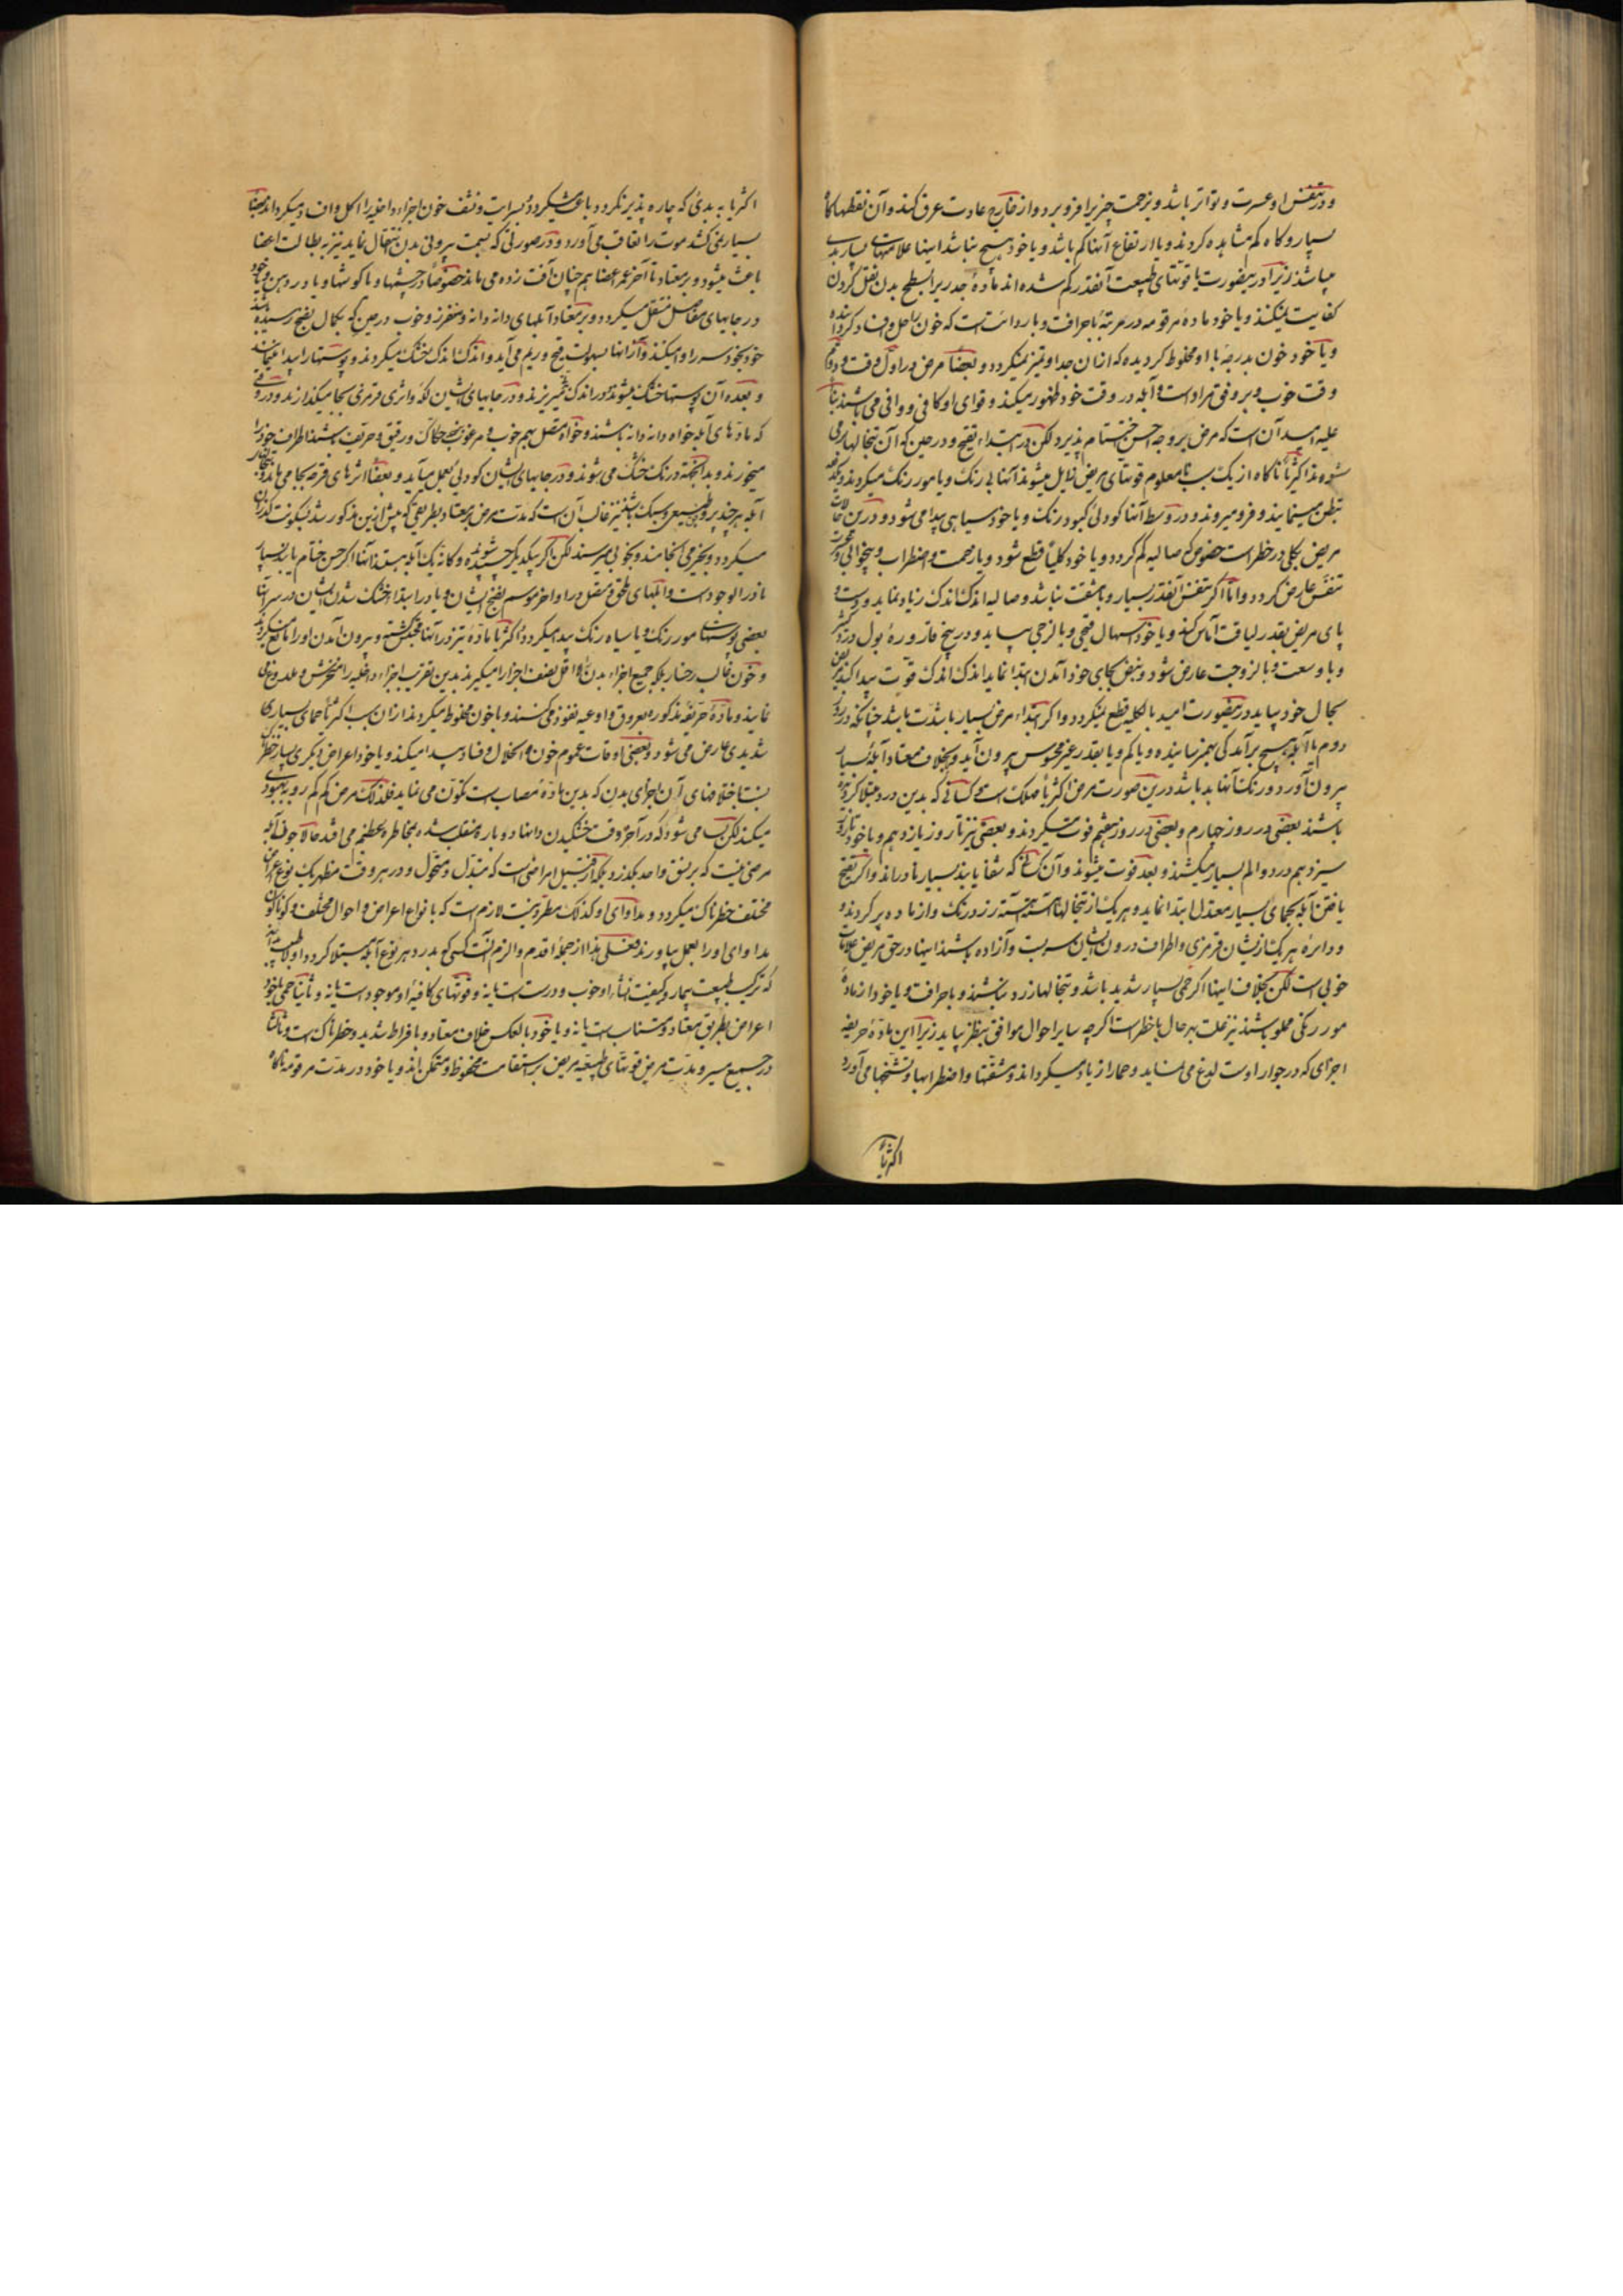 و در تنفس او عسرت و تواتر باشد و بزحمت چیزیرا فرو برد و از خارج عادت عرق کند و آن نقطها کاه
بسیار و کاه کم مشاهده کردند و یا ارتفاع آنها کم باشد و یا خود هیچ نباشد اینها علامتهای بسیار بد
میباشند زیرا درینصورت یا قوتهای طبیعت آنقدر کم شده اند مادهٔ جدریرا بسطح بدن نقل کردن
کفایت نمیکنند و یا خود مادهٔ مرقومه در مرتبهٔ با حرافت و یا ردائت است که خون را حل و افساد کرداننده
و یا خود خون بدرجهٔ با او مخلوط کردیده که ازان جدا و متمیز نمیکردد و بعضاً مرض در اول وقت و دوام
وقت خوب و بر وفق مراد است و آبله در وقت خود ظهور میکند و قوای او کافی و وافی می باشند بناً
علیه امید آن است که مرض بر وجه احسن اختتام پذیرد لکن در ابتداء تقیح و در حین که آن تبخالها پر می
شوند اکثریا ناکاه از یک سبب نامعلوم قوتهای مریض زایل میشوند آنها بی رنک و یا مور رنک میکردند و
تبطن مینمایند و فرو میروند و در وسط آنها کودلی کبود رنک و یا خود سیاهی پیدا می شود و درین حالات
مریض بکلی در خطر است خصوص که صالیه کم کردد و یا خود کلیاً قطع شود و یا زحمت و اضطراب و بیخوابی و
تنفس عارض کردد و اما اکر تنفس آنقدر بسیار و با مشقت نباشد و صالیه اندک اندک زیاد نماید و دست و
پای مریض بقدر لیاقت آماس کند و یا خود اسهال قیحی و یا لزجی بیاید و در بیخ قارورهٔ بول دردی کثیر
و با وسعت و با لزوجت عارض شود و نبض بجای خود آمدن ابتدا نماید اندک اندک قوّت پیدا کند
بحال خود بیاید درینصورت امید بالکلیه قطع نمیکردد و اکر ابتداء مرض بسیار با شدت باشد چنانکه در روز
دوم یا آبله هیچ برآمدکی بهم نرسانیده و یا کم و یا بقدر غیر محسوس بیرون آید و بخلاف معتاد آبلهٔ بسیار
بیرون آورد و رنک آنها بد باشد درین صورت مرض اکثریا مهلک است کسانی که بدین درد مبتلا کردیده
باشند بعضی در روز چهارم و بعضی در روز هفتم فوت میکردند و بعضی نیز تا روز یازدهم و یا خود تا روز
سیزدهم درد و الم بسیار میکشند و بعد فوت میشوند و آن کسانی که شفا یابند بسیار نادراند و اکر تقیح
یافتن آبله بحمای بسیار معتدل ابتدا نماید و هر یک از تبخالها آهسته آهسته زرد رنک و از ماده پر کردند و
و دایرهٔ هر یک ازیشان قرمزی و اطراف درون ایشان سربت و آزاده باشند اینها در حق مریض علامات
خوبی است لکن بخلاف اینها اکر حمی بسیار شدید باشد و تبخالها زرد نباشند و با حرافت و یا خود از مادهٔ
مور رنکی مملو باشند نیز علت بهر حال با خطر است اکرچه سایر احوال موافق بنظر بیاید زیرا این مادهٔ حریفه
اجزای که در جوار اوست لدغ می نماید و حما را زیاد میکرداند و مشقتها و اضطرابها و تشنجها می آورد
اکثریا
اکثریا به بدی که چاره پذیر نکردد باعث میکردد بسرایت و نشف خون اجزاء داخلیه را اکل و افساد میکرداند بعضاً
بسیار نمی کشد موت را تعاقب می آورد و در صورتی که بسمت بیرونی بدن انتقال نماید نیز به بطالت اعضا
باعث میشود و بر معتاد تا آخر عمر اعضا همچنان آفت زده می ماند خصوصاً در چشمها و یا کوشها و یا در دهن و یا خود
در جایهای مفاصل منتقل میکردد و بر معتاد آبلهای دانه دانه و متفرز و خوب در حین که بکمال نضج رسیده باشند
خود بخود سر را وا میکنند و از آنها بسهولت قیح و ریم می آید و اندک اندک خشک میکردند و پوستها را پیدا مینمایند
و بعده آن پوستها خشک میشوند و در اندک میریزند و در جایهای ایشان لکه و اثری قرمزی بجا میکذارند و در وقتی
که مادهای آبله خواه دانه دانه باشند و خواه متصل بهم خوب و مرغوب حکاک و رقیق و حریف باشند اطراف خود را
میخورند و بد آنجته در رنک خشک می شوند و در جایهای ایشان کودلی بعمل میآید و بعضاً اثرهای قرحه بجا می ماند
آبله هر چند بر وجه طبیعی و سبک باشد نیز غالب آن است که مدت مرض بر معتاد بطریقی که پیش ازین مذکور شد
میکردد و بخیر می انجامند و بخوبی میرسند لکن اکر بیکدیکر چسپیده شوند و کانه یک آبله بستند آنها اکر حسن ختام یابند بسیار
نادر الوجود است و آبلهای ملحق و متصل در اواخر موسم نضج ایشان و یا در ابتدا خشک شدن ایشان در سر آنها
بعضی پوستهای مور رنک و یا سیاه رنک پیدا میکردد و اکثریا مادهٔ تیز در آنها محتبس کشته و بیرون آمدن او را مانع میکردند
و خون غالب رخسار بلکه جمیع اجزاء بدن را و اقل نصف اجزا را میکیرند بدین تقریب اجزاء داخلیه را متخرش و ملدوغ می
نمایند و مادهٔ حریفهٔ مذکوره بعروق و اوعیه نفوذ می کنند و با خون مخلوط میکردند ازان سبب اکثریا حمای بسیاری
شدیدی عارض می شود و بعضی اوقات عموم خون و انحلال و فساد پیدا میکند و یا خود اعراض دیکری بسیار خطر
باختلافهای آن اجزای بدن که بدین مادهٔ مصاب است تکوّن می نماید فلذلک مرض کم کم رو به بهبودی
میکند لکن بسا می شود که در آخر وقت خشکیدن دانها دوباره منقلب شده بمخاطره عظیم می افتد حالا چون آبله
مرضی نیست که بر نسق واحد بکذرد بلکه از قبیل امراضی است که متبدل و متحول و در هر وقت مظهر یک نوع اعراض
مختلف خطرناک میکردد و مداوای او کذلک مطرد نیست لازم است که بانواع اعراض و احوال مختلف و کوناکون
مداوای او را بعمل بیاورند فعلی هذا از جملهٔ اقدم و الزم آنست کسی که بدرد هر نوع آبله مبتلا کردد اولا
که ترکیب طبیعت بیمار و کیفیت انشاء او خوب و درست است یا نه و قوتهای کافیهٔ او موجود است یا نه و ثانیاً حمی یا خود
اعراض بطریق معتاد و متناسب است یا نه و یا خود بالعکس خلاف معتاد و بافراط شدید و خطرناک است و ثالثاً
در جمیع سیر و مدت مرض قوتهای طبیعیه مریض بر استقامت محفوظ و متمکن ماند و یا خود در مدت مرقومه ناکاه